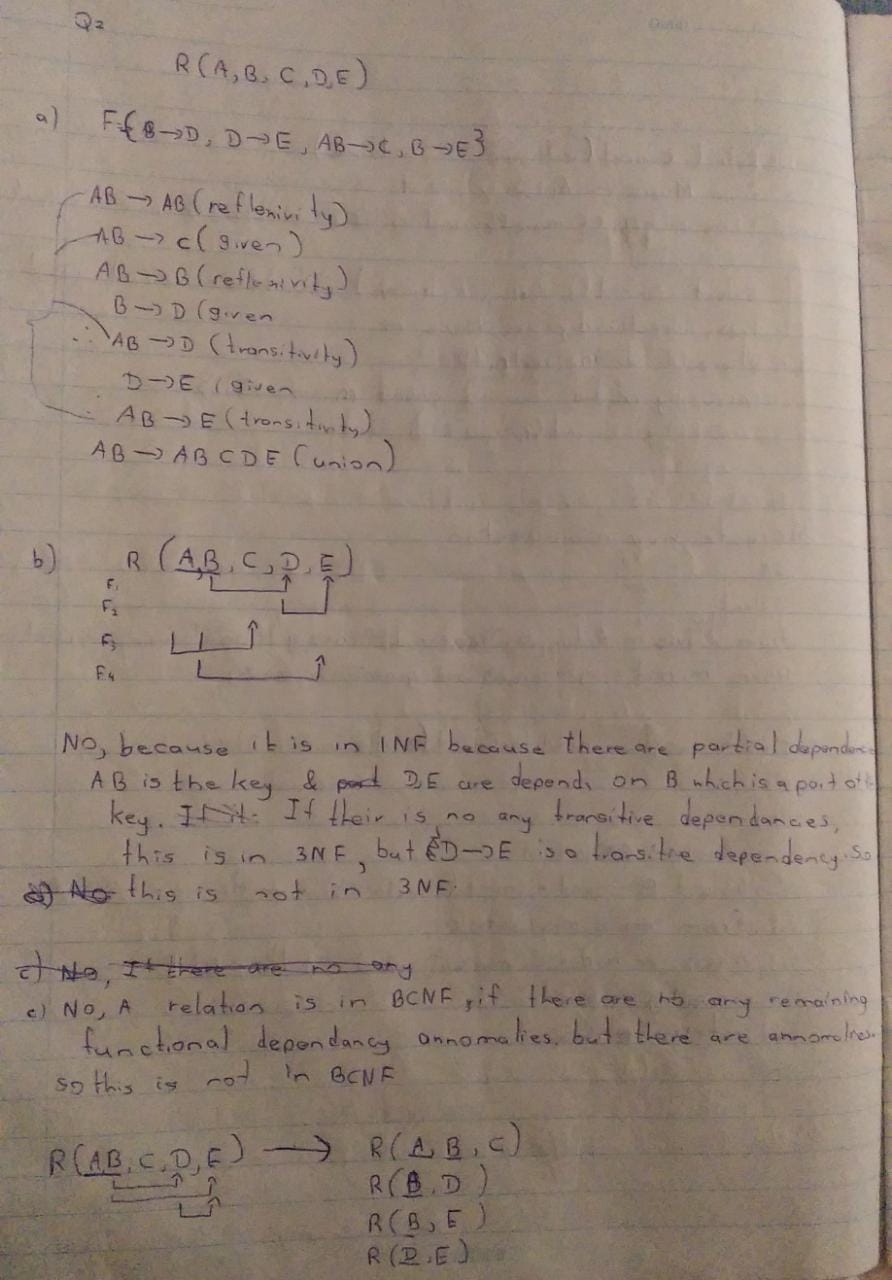 Q2
R(A,B,C,D,E)
a) F{B→D, D→E, AB→C, B→E}
AB → AB (reflexivity)
AB → c (given)
AB → B (reflexivity)
B → D (given
∴ AB → D (transitivity)
D → E (given
∴ AB → E (transitivity)
AB → ABCDE (union)
b) R (A,B,C,D,E)
F1
F2
F3
F4
No, because it is in 1NF because there are partial dependence
AB is the key & part D,E are depends on B which is a part of
key. If it. If their is no any transitive dependances,
this is in 3NF, but D→E is a transitie dependency. so
b) No this is not in 3NF.
c) No, If there are no any
c) No, A relation is in BCNF, if there are no any remaining
functional dependancy annomalies. but there are annomolies.
so this is not in BCNF
R(AB,C,D,E) → R(A,B,C)
R(B,D)
R(B,E)
R(D,E)